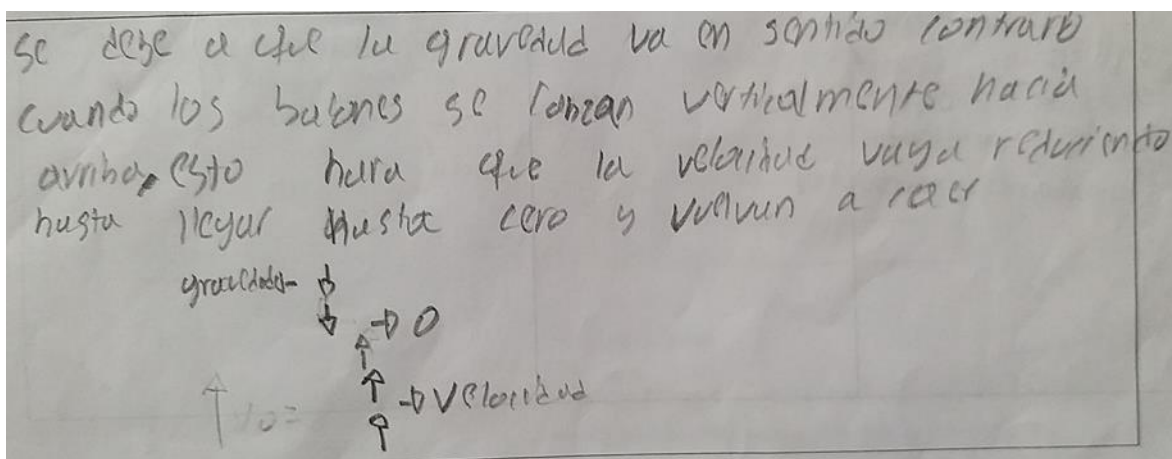 se debe a que la gravedad va en sentido contraro
cuando los balones se lanzan verticalmente hacia
arriba, esto hara que la velocidad vaya reduciendo
hasta llegar hasta cero y vuelvan a caer
gravedad-
→ 0
→ velocidad